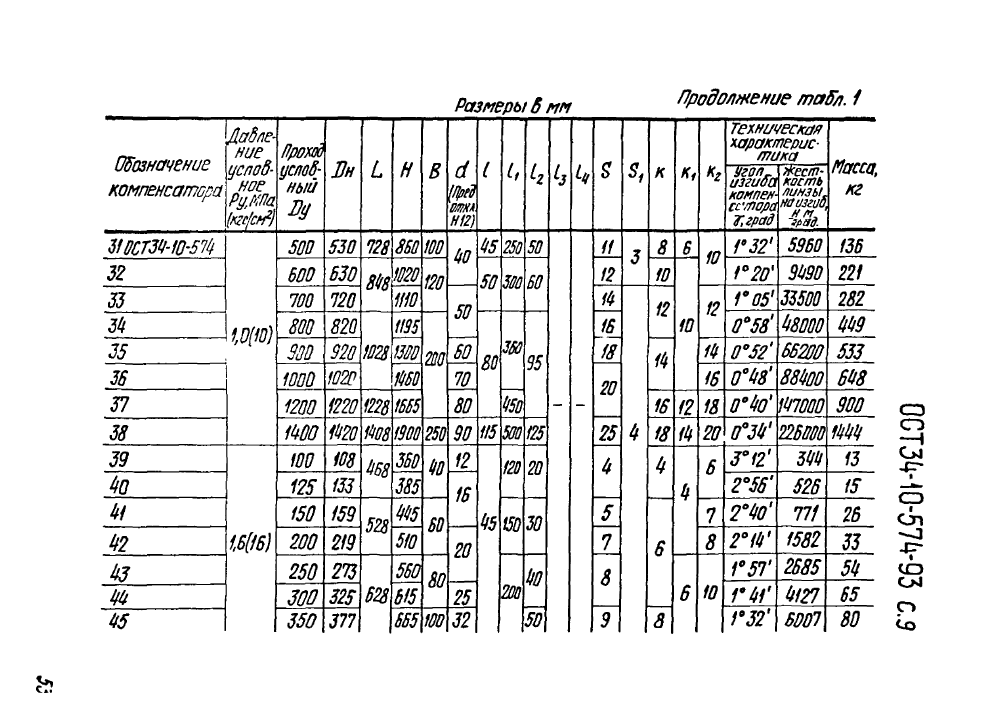 Размеры в мм
Продолжение табл. 1
Обозначение компенсатора | Давление условное Ру, МПа (кгс/см²) | Проход условный Dу | Dн | L | H | B | d (Пред откл. H12) | l | l₁ | l₂ | l₃ | l₄ | S | S₁ | к | к₁ | к₂ | Техническая характеристика | Масса, кг
Угол изгиба компенсатора γ, град | Жесткость линзы на изгиб, Н м град.
31 ОСТ34-10-574 | 1,0(10) | 500 | 530 | 728 | 860 | 100 | 40 | 45 | 250 | 50 | – | – | 11 | 3 | 8 | 6 | 10 | 1°32' | 5960 | 136
32 | 600 | 630 | 848 | 1020 | 120 | 50 | 300 | 60 | 12 | 10 | 10 | 1°20' | 9490 | 221
33 | 700 | 720 | 1110 | 50 | 14 | 4 | 12 | 12 | 1°05' | 33500 | 282
34 | 800 | 820 | 1028 | 1195 | 200 | 80 | 360 | 95 | 16 | 0°58' | 48000 | 449
35 | 900 | 920 | 1300 | 60 | 18 | 14 | 14 | 0°52' | 66200 | 533
36 | 1000 | 1020 | 1460 | 70 | 20 | 16 | 0°48' | 88400 | 648
37 | 1200 | 1220 | 1228 | 1665 | 80 | 450 | 16 | 12 | 18 | 0°40' | 147000 | 900
38 | 1400 | 1420 | 1408 | 1900 | 250 | 90 | 115 | 500 | 125 | 25 | 18 | 14 | 20 | 0°34' | 226000 | 1444
39 | 1,6(16) | 100 | 108 | 468 | 360 | 40 | 12 | 45 | 120 | 20 | 4 | 4 | 4 | 6 | 3°12' | 344 | 13
40 | 125 | 133 | 385 | 16 | 2°56' | 526 | 15
41 | 150 | 159 | 528 | 445 | 60 | 150 | 30 | 5 | 6 | 7 | 2°40' | 771 | 26
42 | 200 | 219 | 510 | 20 | 7 | 8 | 2°14' | 1582 | 33
43 | 250 | 273 | 628 | 560 | 80 | 200 | 40 | 8 | 6 | 10 | 1°57' | 2685 | 54
44 | 300 | 325 | 615 | 25 | 1°41' | 4127 | 65
45 | 350 | 377 | 665 | 100 | 32 | 50 | 9 | 8 | 1°32' | 6007 | 80
ОСТ34-10-574-93 с.9